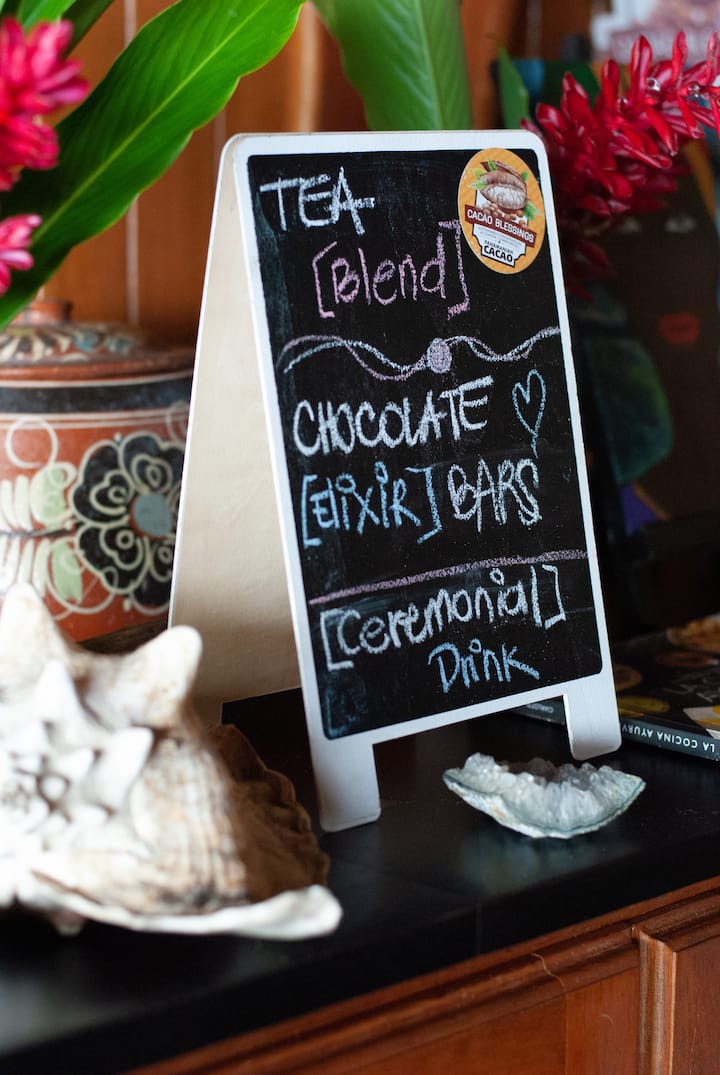 TEA
[Blend]
CACAO BLESSINGS
PANAMANIAN
CACAO
CHOCOLATE
[ElixiR] BARS
[Ceremonial]
DRink
LA COCINA AYURV